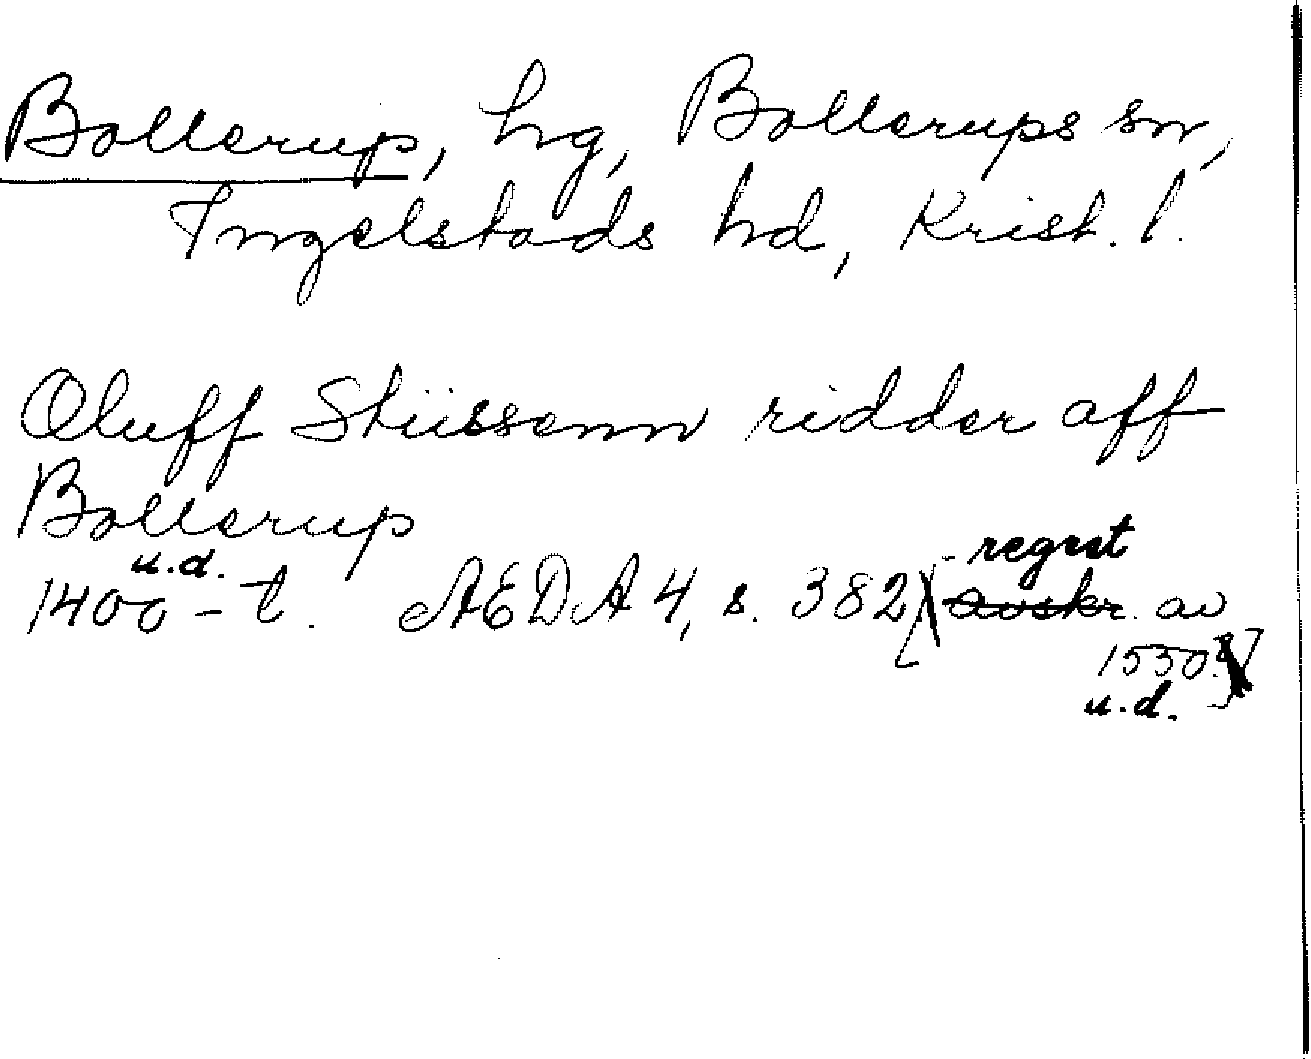 Bollerup, hg, Bollerups sn,
Ingelstads hd, Krist. l.
Oluff Stiissenn ridder aff
Bollerup
u.d.
1400-t. AEDA 4, s. 382 [regest
avskr. av
1550.]
u.d.